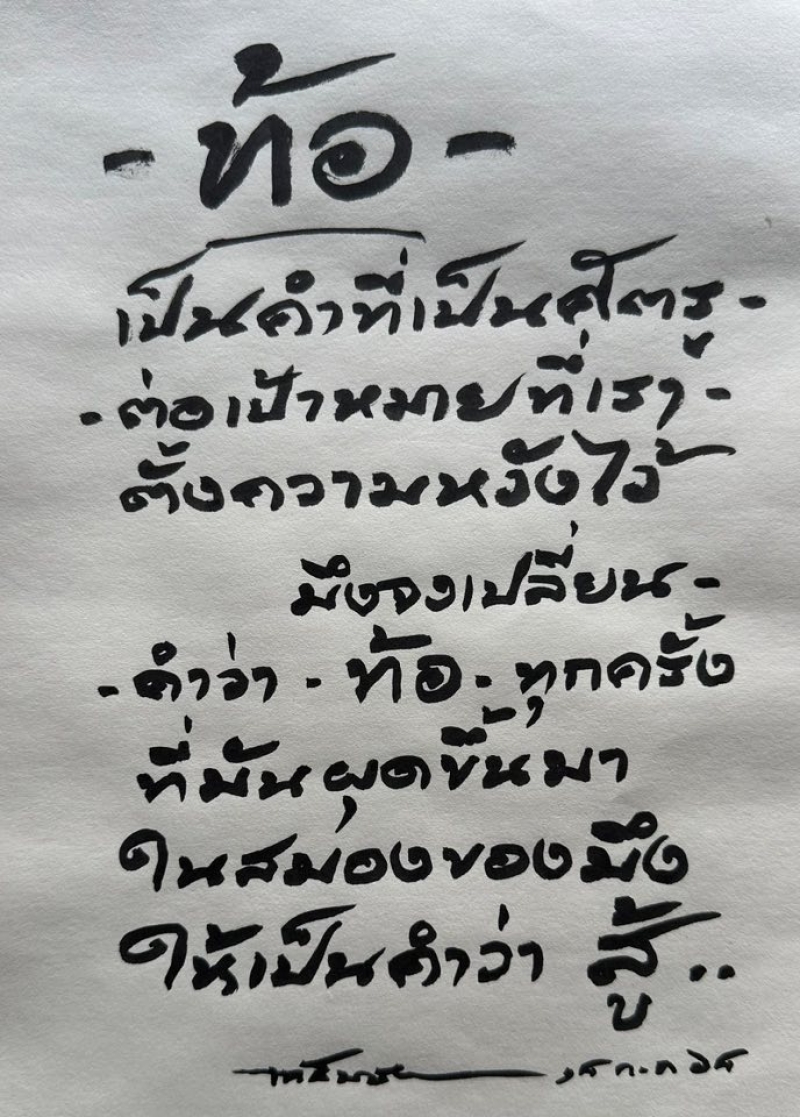 - ท้อ -
เป็นคำที่เป็นศัตรู -
- ต่อเป้าหมายที่เรา -
ตั้งความหวังไว้
มึงจงเปลี่ยน -
- คำว่า - ท้อ - ทุกครั้ง
ที่มันผุดขึ้นมา
ในสมองของมึง
ให้เป็นคำว่า สู้ ..